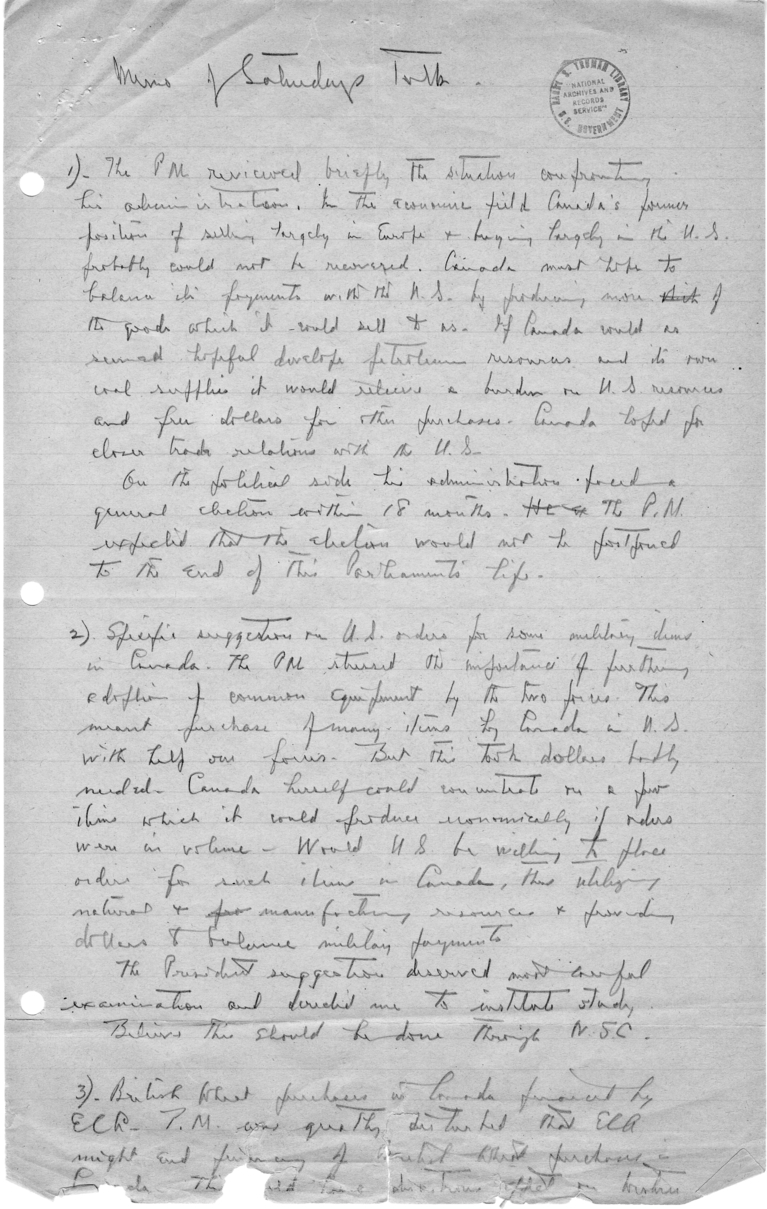 Memo of Saturdays Talk.
HARRY S. TRUMAN LIBRARY
"NATIONAL
ARCHIVES AND
RECORDS
SERVICE"
U.S. GOVERNMENT
1)- The PM reviewed briefly the situation confronting
his administration. In the economic field Canada's former
position of selling largely in Europe & buying largely in the U.S.
probably could not be recovered. Canada must hope to
balance its payments with the U.S. by producing more of
the goods which it could sell to us. If Canada could as
seemed hopeful develope petroleum resources and its own
coal supplies it would relieve a burden on U.S. resources
and free dollars for other purchases. Canada hoped for
closer trade relations with the U.S.
On the political side his administration faced a
general election within 18 months. He The P.M.
expected that the election would not be postponed
to the end of this Parliament's life.
2). Specific suggestion on U.S. orders for some military items
in Canada. The PM stressed the importance of furthering
adoption of common equipment by the two forces. This
meant purchase of many items by Canada in U.S.
with help our forces. But this took dollars badly
needed. Canada herself could concentrate on a few
items which it could produce economically if orders
were in volume - Would U.S. be willing to place
orders for such items in Canada, thus utilizing
natural & manufacturing resources & providing
dollars to balance military payments
The President suggestion deserved most careful
examination and directed me to institute study.
Believe this should be done through N.S.C.
3)- British wheat purchases in Canada financed by
ECA- P.M. was greatly disturbed that ECA
might end financing of British wheat purchases in
Canada. The on